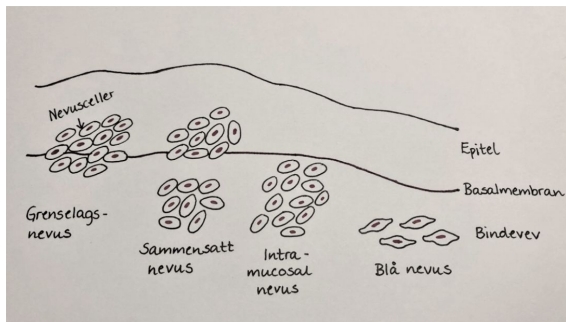 Nevusceller
Epitel
Basalmembran
Grenselags-
nevus
Sammensatt
nevus
Intra-
mucosal
nevus
Blå nevus
Bindevev